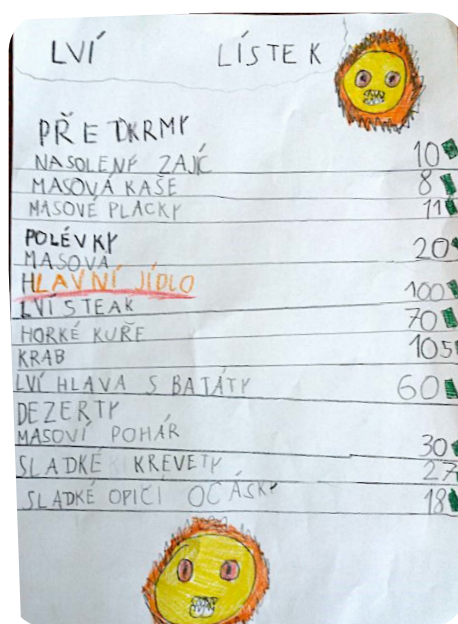 LVÍ LÍSTEK
PŘEDKRMY
NASOLENÝ ZAJÍC 10
MASOVÁ KAŠE 8
MASOVÉ PLACKY 11
POLÉVKY
MASOVÁ 20
HLAVNÍ JÍDLO
LVÍ STEAK 100
HORKÉ KUŘE 70
KRAB 105
LVÍ HLAVA S BATÁTY 60
DEZERTY
MASOVÍ POHÁR 30
SLADKÉ KREVETY 27
SLADKÉ OPIČÍ OCÁSKY 18